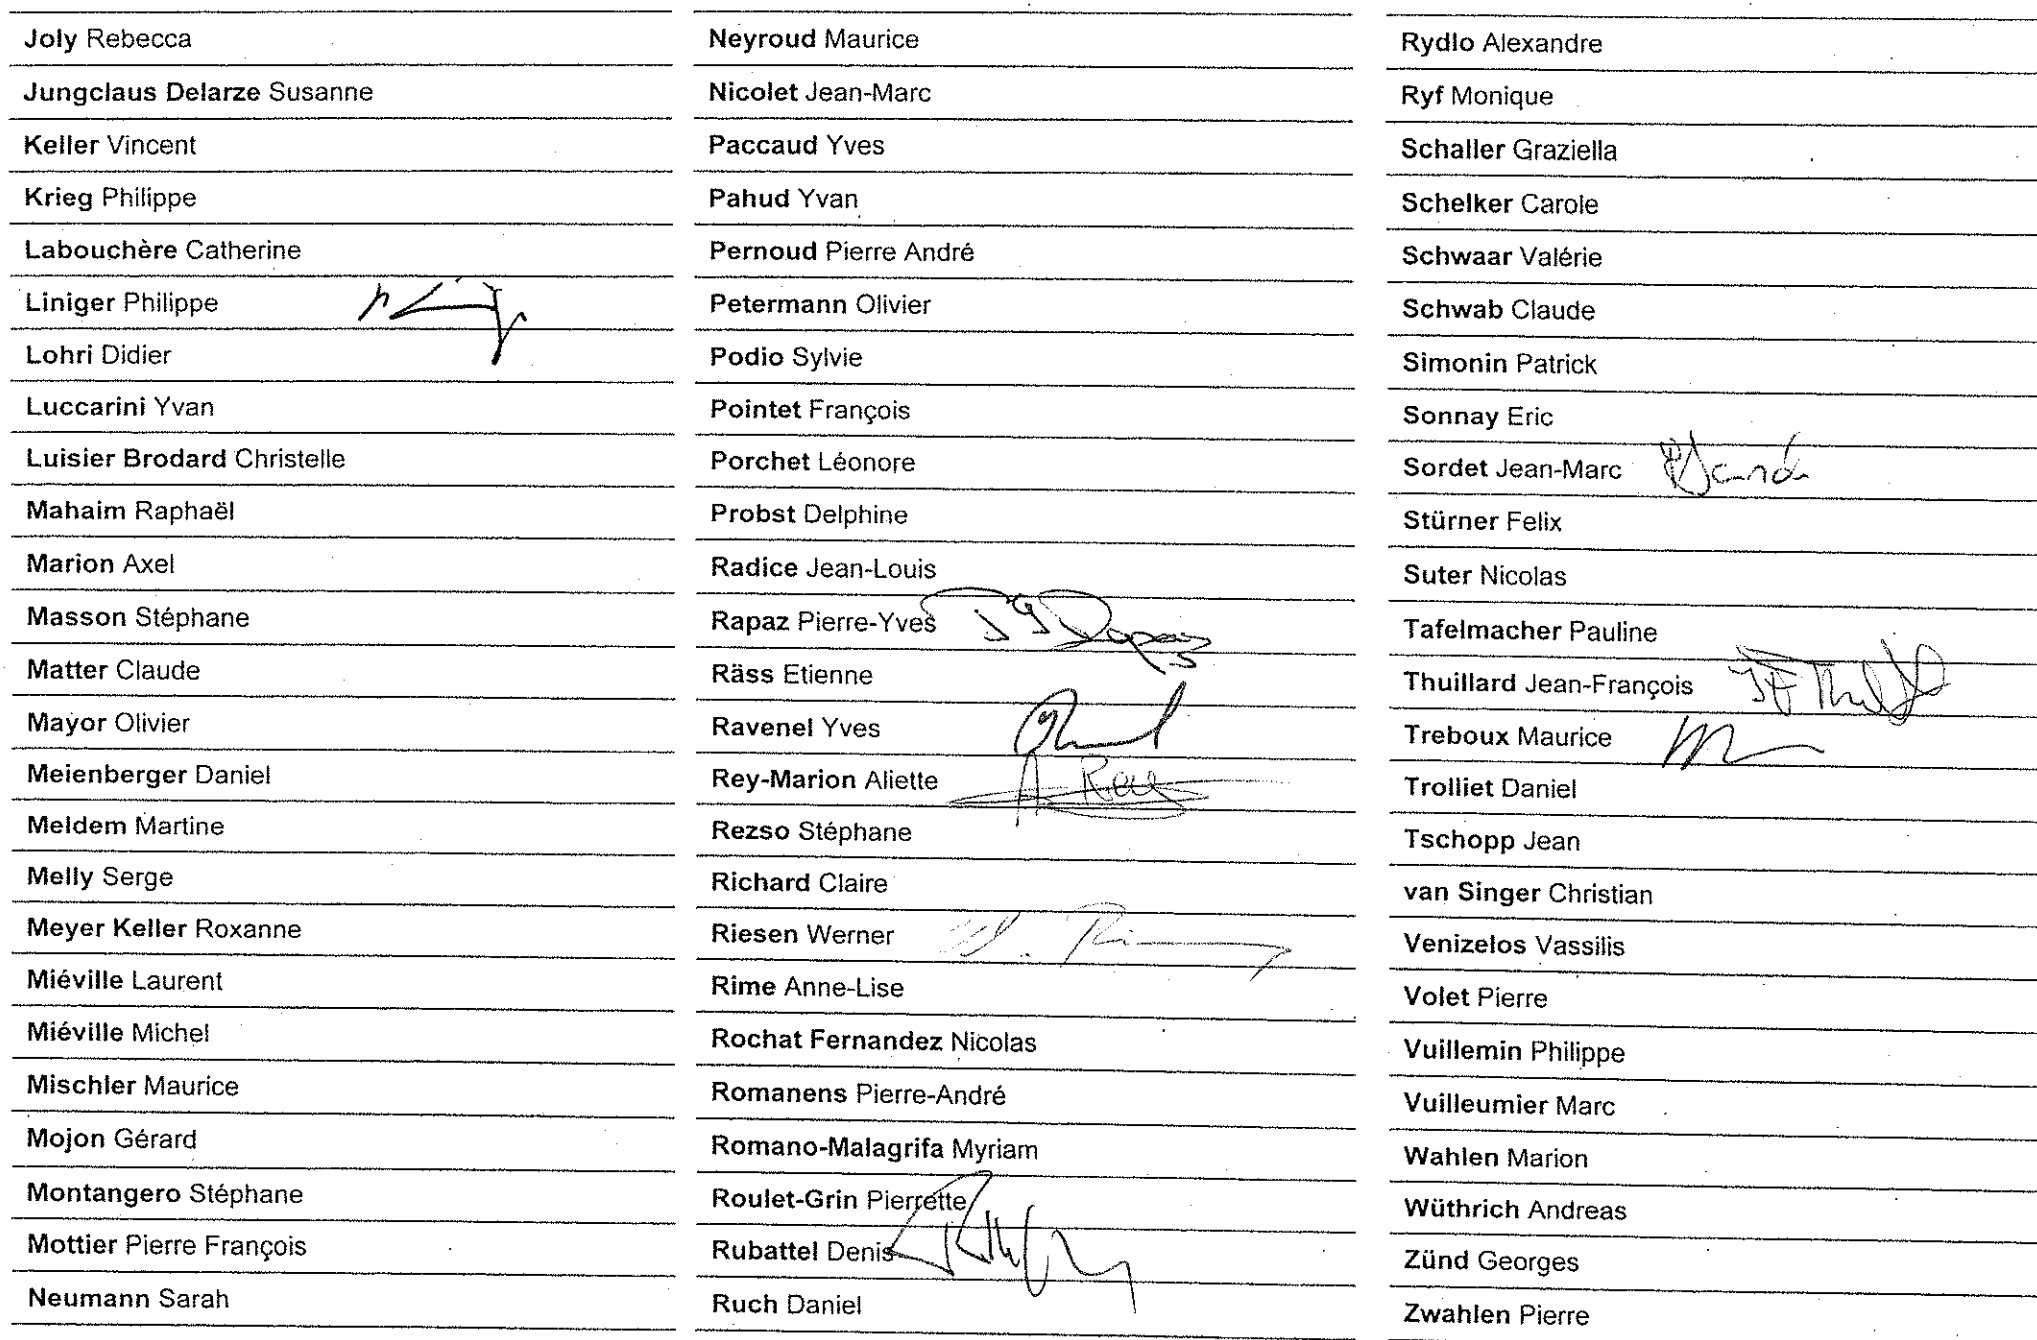 Joly Rebecca
Jungclaus Delarze Susanne
Keller Vincent
Krieg Philippe
Labouchère Catherine
Liniger Philippe
Lohri Didier
Luccarini Yvan
Luisier Brodard Christelle
Mahaim Raphaël
Marion Axel
Masson Stéphane
Matter Claude
Mayor Olivier
Meienberger Daniel
Meldem Martine
Melly Serge
Meyer Keller Roxanne
Miéville Laurent
Miéville Michel
Mischler Maurice
Mojon Gérard
Montangero Stéphane
Mottier Pierre François
Neumann Sarah
Neyroud Maurice
Nicolet Jean-Marc
Paccaud Yves
Pahud Yvan
Pernoud Pierre André
Petermann Olivier
Podio Sylvie
Pointet François
Porchet Léonore
Probst Delphine
Radice Jean-Louis
Rapaz Pierre-Yves
Räss Etienne
Ravenel Yves
Rey-Marion Aliette A Rey
Rezso Stéphane
Richard Claire
Riesen Werner
Rime Anne-Lise
Rochat Fernandez Nicolas
Romanens Pierre-André
Romano-Malagrifa Myriam
Roulet-Grin Pierrette
Rubattel Denis
Ruch Daniel
Rydlo Alexandre
Ryf Monique
Schaller Graziella
Schelker Carole
Schwaar Valérie
Schwab Claude
Simonin Patrick
Sonnay Eric
Sordet Jean-Marc
Stürner Felix
Suter Nicolas
Tafelmacher Pauline
Thuillard Jean-François
Treboux Maurice
Trolliet Daniel
Tschopp Jean
van Singer Christian
Venizelos Vassilis
Volet Pierre
Vuillemin Philippe
Vuilleumier Marc
Wahlen Marion
Wüthrich Andreas
Zünd Georges
Zwahlen Pierre